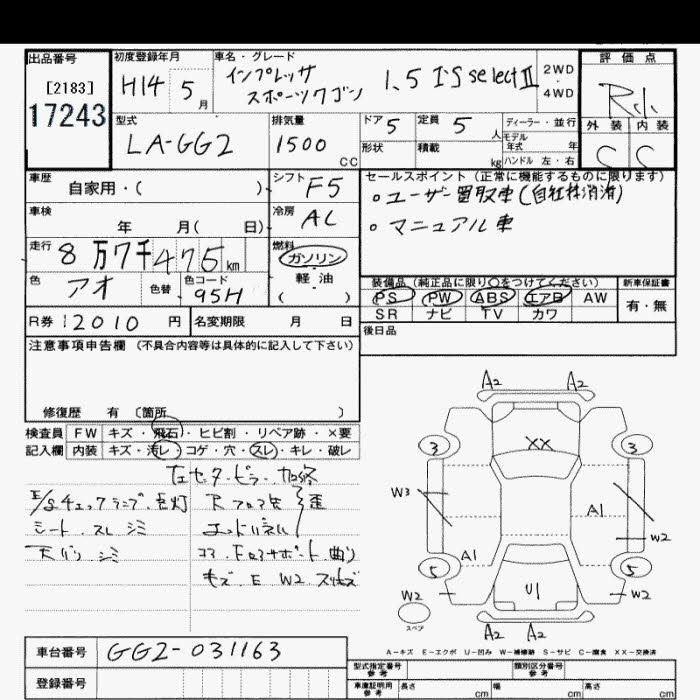 出品番号
[2183]
17243
初度登録年月
H14 5月
車名・グレード
インプレッサ
スポーツワゴン
1.5 I'S select II
2WD・4WD
評価点
外装 内装
C C
型式
LA-GG2
排気量
1500 CC
ドア 5
定員 5人
形状
積載 kg
ディーラー・並行
モデル年式 年
ハンドル 左・右
車歴
自家用・( )
シフト F5
車検
年 月( 日)
冷房 AC
走行
8万7千475km
燃料
ガソリン
軽油
( )
色
アオ
色替
色コード
95H
R券 12010円
名変期限 月 日
セールスポイント (正常に機能するものに限ります)
。ユーザー買取車(自社抹消済)
。マニュアル車
装備品(純正品に限り○をつけてください)
PS PW ABS エアB AW
SR ナビ TV カワ
新車保証書
有・無
後日品
注意事項申告欄 (不具合内容等は具体的に記入して下さい)
修復歴 有 〔箇所 〕
検査員記入欄
FW キズ・飛石・ヒビ割・リペア跡・×要
内装 キズ・汚レ・コゲ・穴・スレ・キレ・破レ
E/gチェックランプ 点灯
シート スレ シミ
天バリ シミ
キズ・E W2 スリキズ
A2 A2
3 XX 3
W3 A1
W2
A1
5 U1 5
W2 W2
スペア
A2 A2
A-キズ E-エクボ U-凹み W-補修跡 S-サビ C-腐食 XX-交換済
車台番号 GG2-031163
登録番号
型式指定番号 参考
類別区分番号 参考
車庫証明用 参考
長さ cm
幅 cm
高さ cm